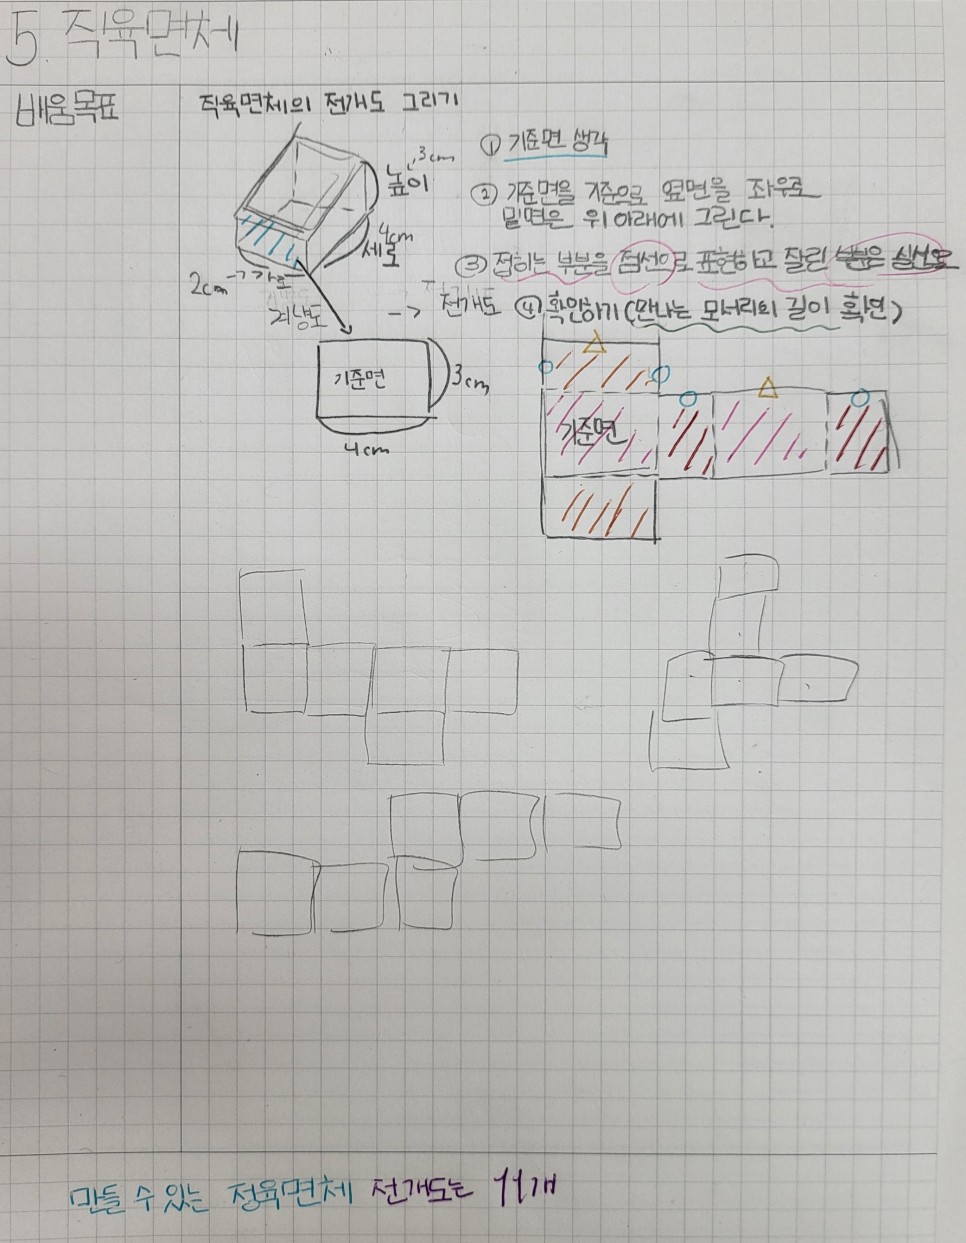 5. 직육면체
배움목표
직육면체의 전개도 그리기
3cm
높이
4cm
세로
2cm
가로
겨냥도
기준면
3cm
4cm
① 기준면 생각
② 기준면을 기준으로 옆면을 좌우로
밑면은 위 아래에 그린다.
③ 접히는 부분을 점선으로 표현하고 잘린 부분은 실선으로
-> 전개도 ④ 확인하기(만나는 모서리의 길이 확인)
기준면
만들 수 있는 정육면체 전개도는 11개